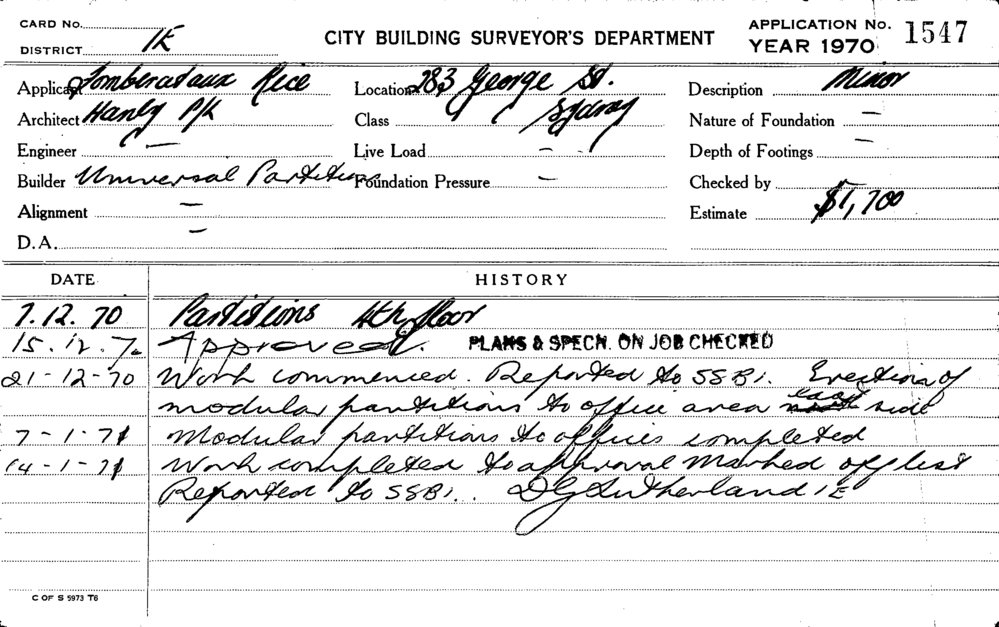 CARD No.
DISTRICT 1E
CITY BUILDING SURVEYOR'S DEPARTMENT
APPLICATION No. 1547
YEAR 1970
Applicant Rice
Location 283 George St.
Description Minor
Architect Hanly P/L
Class Sydney
Nature of Foundation —
Engineer —
Live Load —
Depth of Footings —
Builder Universal Partitions
Foundation Pressure —
Checked by —
Alignment —
Estimate $1,700
D.A. —
DATE HISTORY
7.12.70 Partitions 4th floor
15.12.70 Approved. PLANS & SPECN. ON JOB CHECKED
21-12-70 Work commenced. Reported to SSBI. Erection of
modular partitions to office area east side
7-1-71 Modular partitions to offices completed
14-1-71 Work completed to approval Marked off list
Reported to SSBI. DG Sutherland 1E
C OF S 5973 T6